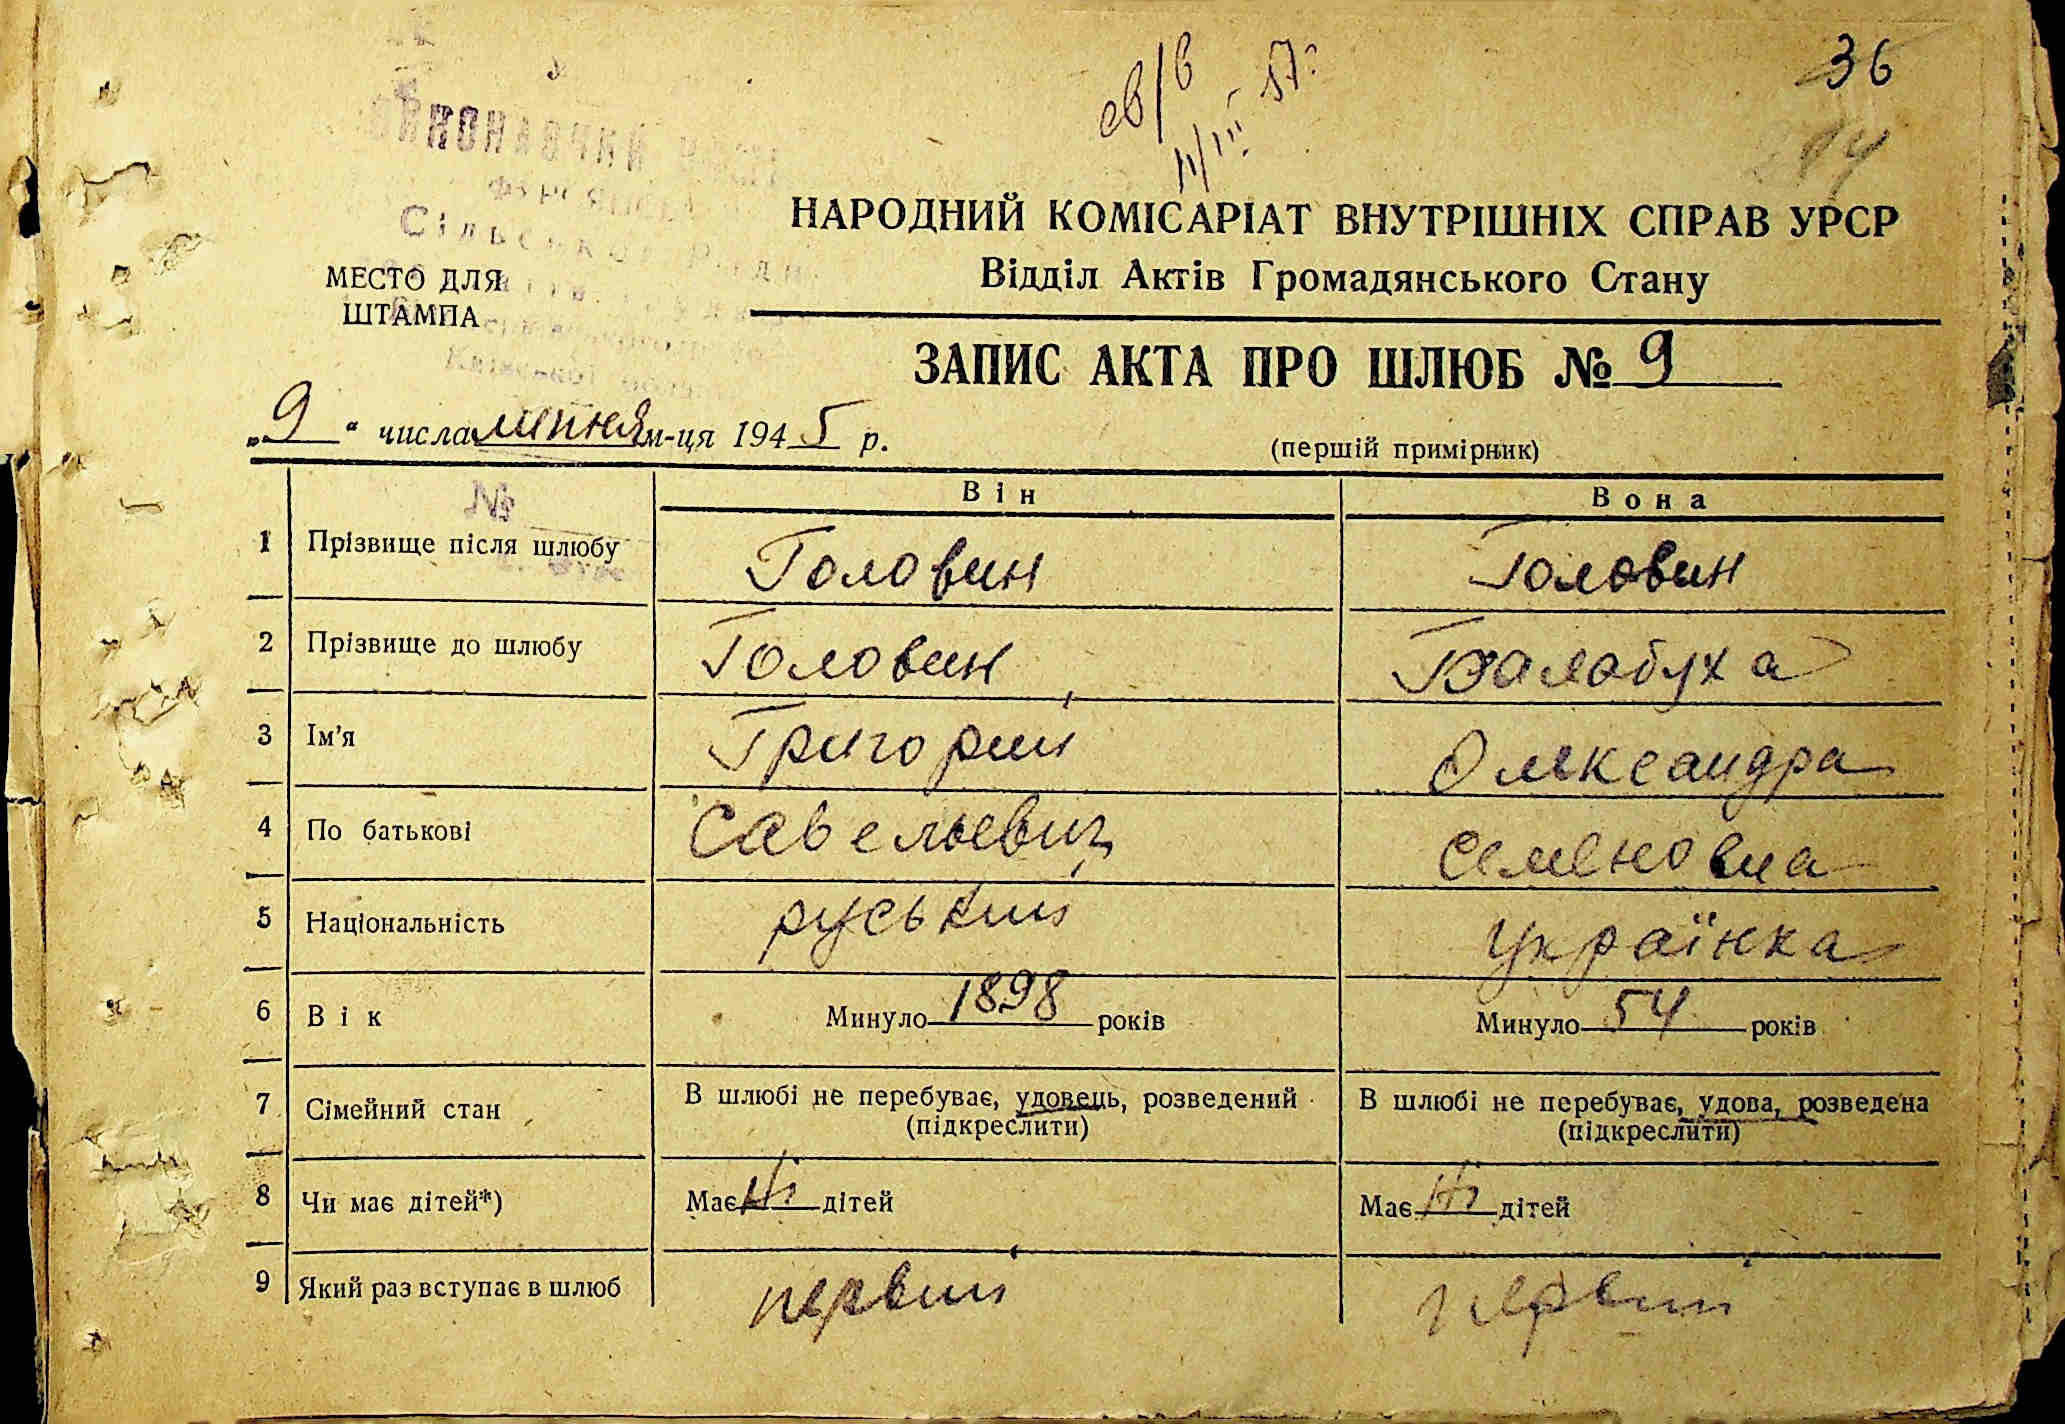 36
св/в
11/III 57г
НАРОДНИЙ КОМІСАРІАТ ВНУТРІШНІХ СПРАВ УРСР
Відділ Актів Громадянського Стану
ВИКОНАВЧИЙ
Сільської Ради
МЕСТО ДЛЯ
ШТАМПА
ЗАПИС АКТА ПРО ШЛЮБ № 9
„9“ числа липня м-ця 1945 р.
(першій примірник)
№
Він Вона
1 Прізвище після шлюбу Головин Головин
2 Прізвище до шлюбу Головин Балабуха
3 Ім’я Григорий Олександра
4 По батькові Савельевич Семеновна
5 Національність руський Українка
6 Вік Минуло 1898 років Минуло 54 років
7 Сімейний стан В шлюбі не перебуває, удовець, розведений В шлюбі не перебуває, удова, розведена
(підкреслити) (підкреслити)
8 Чи має дітей*) Має Ні дітей Має Ні дітей
9 Який раз вступає в шлюб первий первий